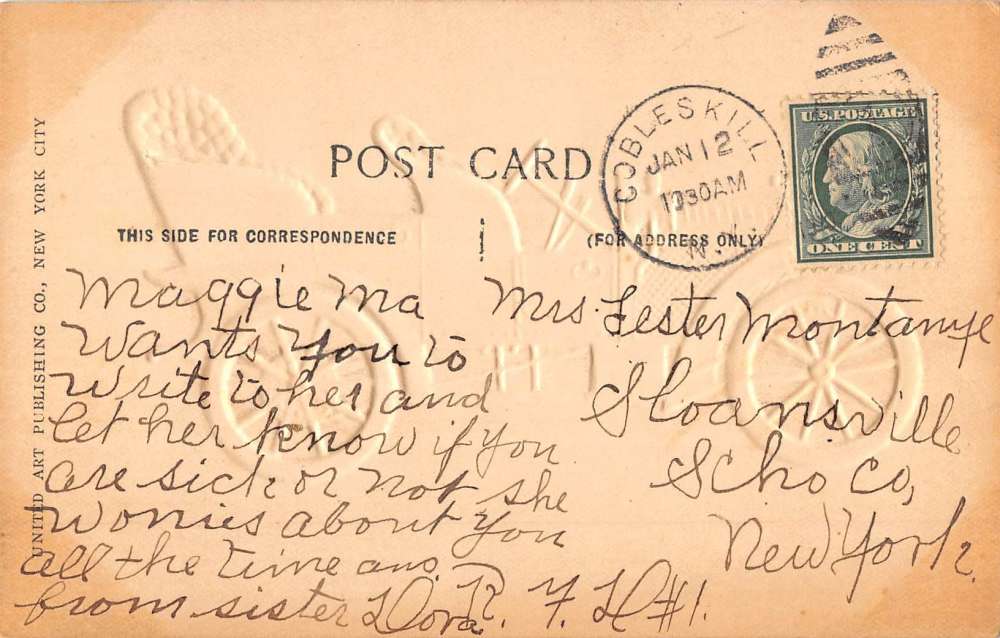 POST CARD
COBLESKILL
JAN 12
1030AM
N.Y.
U.S. POSTAGE
ONE CENT
THIS SIDE FOR CORRESPONDENCE
(FOR ADDRESS ONLY)
UNITED ART PUBLISHING CO., NEW YORK CITY
Maggie Ma
Wants You to
write to her and
let her know if you
are sick or not she
worries about you
all the time ans
from sister Dora
Mrs Lester Montanye
Sloansville
Scho Co,
New York.
R. F. D #1.